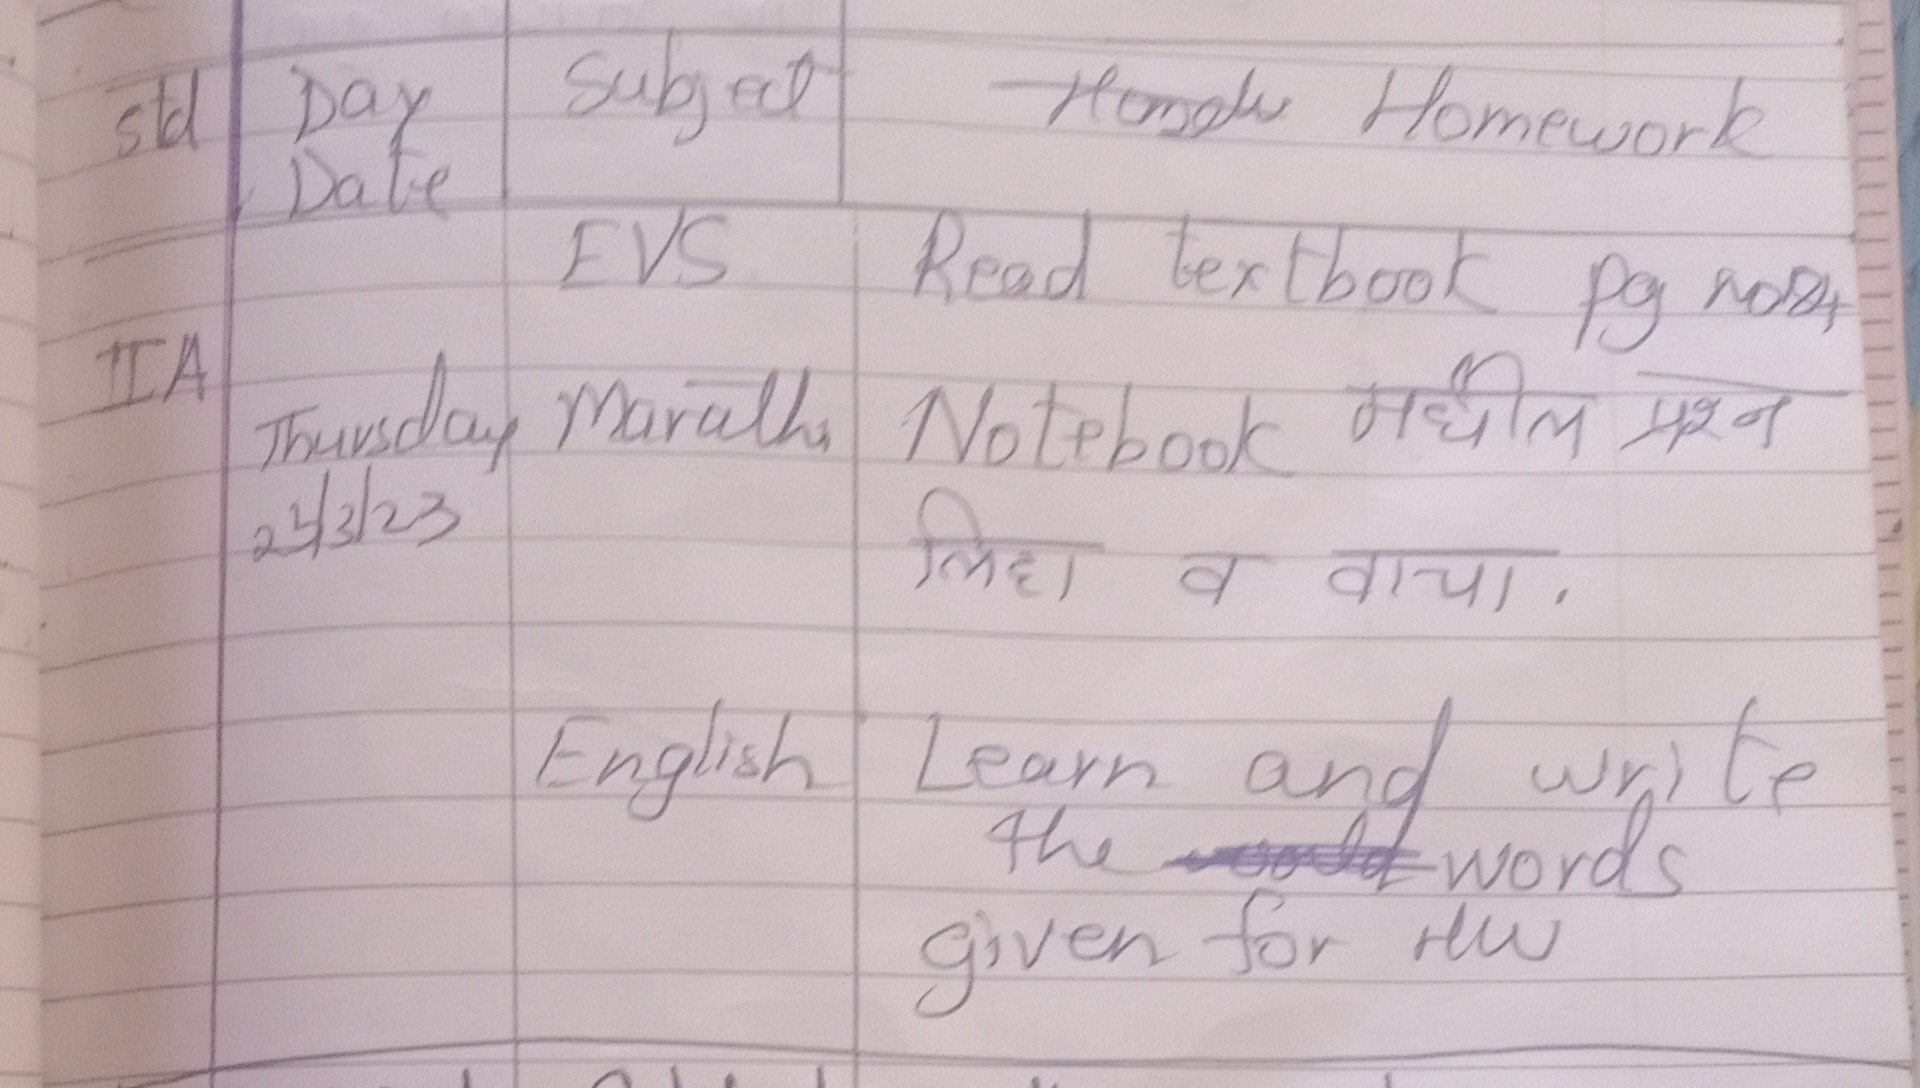 std Day Subject Homework
Date
EVS Read textbook pg no
II A
Thursday Marathi Notebook मधील प्रश्न
/3/23 लिहा व वाचा.
English Learn and write
the words
given for HW